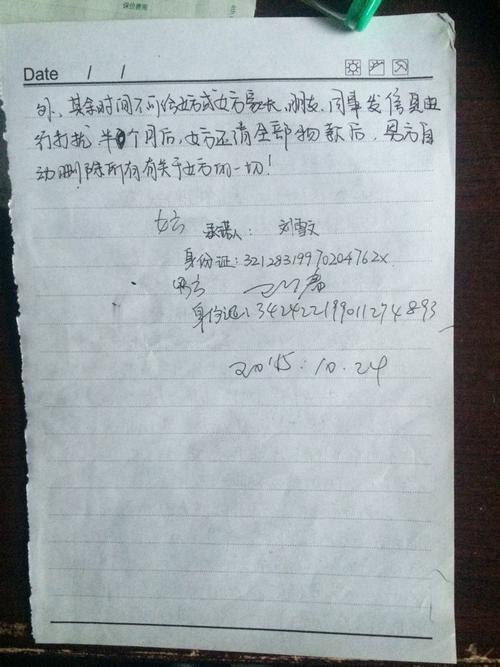 保价费用
Date / /
外,其余时间不可给女方或女方家长、朋友、同事发信息进
行打扰。半个月后,女方还清全部物款后,男方自
动删除所有有关于女方的一切!
女方 承诺人:
身份证:32128319970204762x
男方
身份证:342422199011274893
2015.10.24